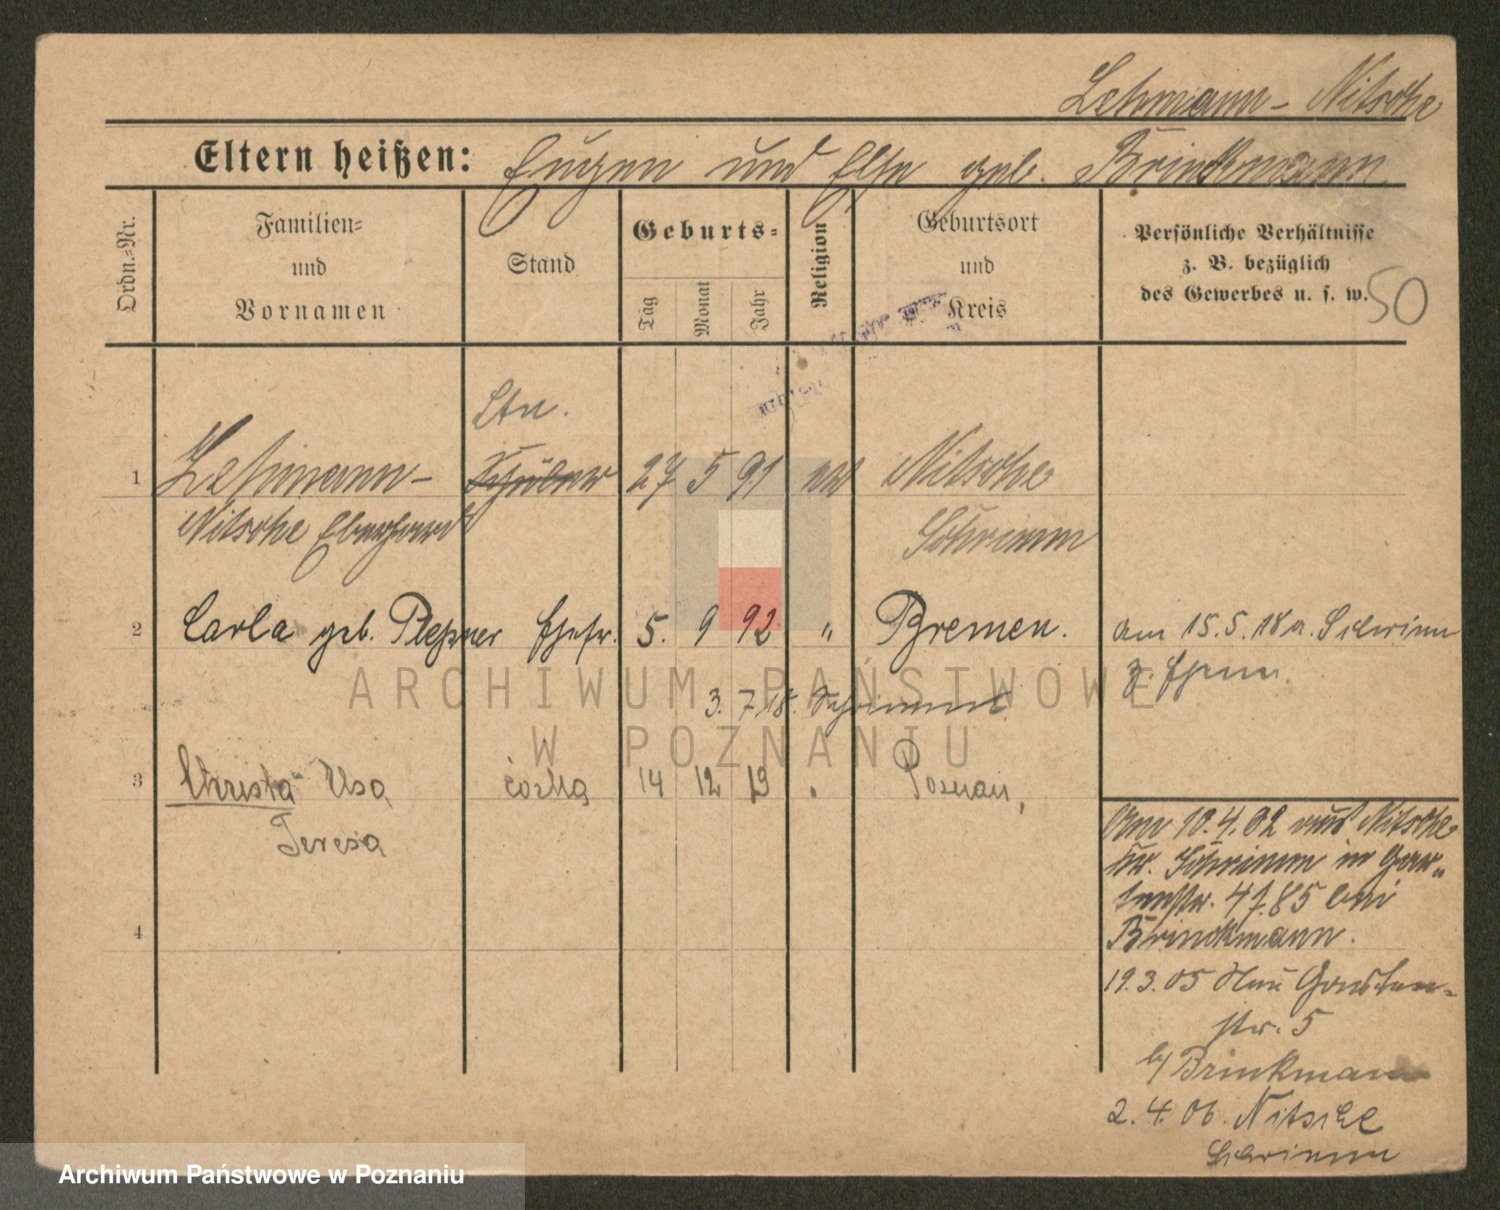 Lehmann-Nitsche
Eltern heißen: Eugen und Else geb. Brinkmann
Ordn.=Nr.
Familien=
und
Vornamen
Stand
Geburts=
Tag
Monat
Jahr
Religion
Geburtsort
und
Kreis
Persönliche Verhältnisse
z. B. bezüglich
des Gewerbes u. s. w.
50
Ltn.
1 Lehmann- Schüler 27 5 91 ev Nitsche
Nitsche Eberhard Schrimm
2 Carla geb. Pleßner Ehefr. 5. 9 92 " Bremen. Am 15.5.18 a. Schrimm
z. Ehem.
3. 7 18. Schrimm
3 Christa Usa córka 14 12 19 Poznań,
Teresa
Am 10.4.02 aus Nitsche
Kr. Schrimm in Gar„
tenstr. 4 bei
Brinckmann.
4
19.3.05 Neue Gartten=
str. 5
b/ Brinkmann
2. 4. 06. Nitsche
Schrimm
ARCHIWUM PAŃSTWOWE
W POZNANIU
Archiwum Państwowe w Poznaniu